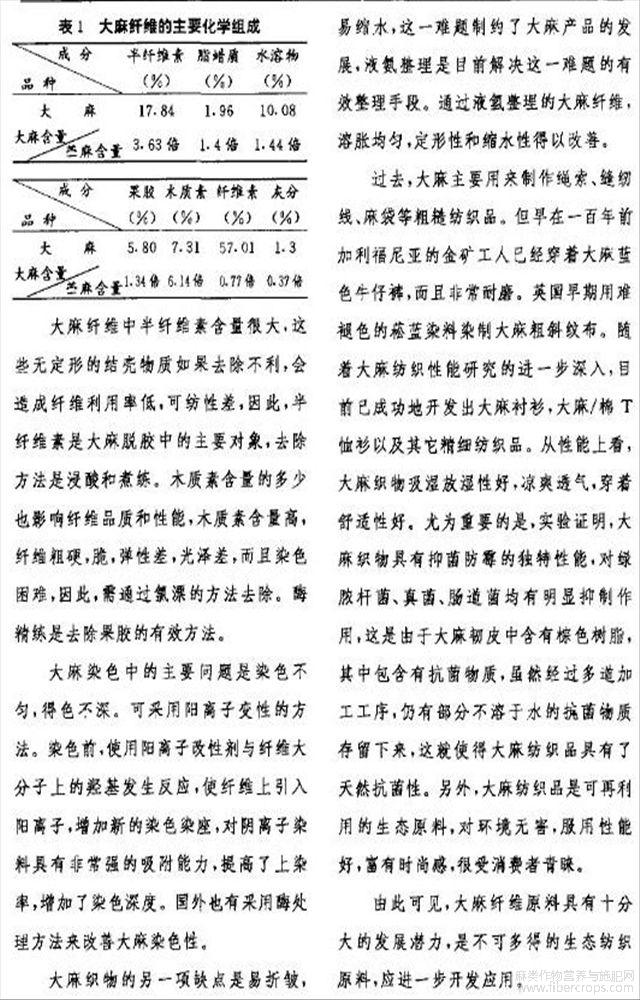 表1 大麻纤维的主要化学组成
成分 半纤维素 脂蜡质 水溶物
品种 (%) (%) (%)
大麻 17.84 1.96 10.08
大麻含量
苎麻含量 3.63倍 1.4倍 1.44倍
成分 果胶 木质素 纤维素 灰分
品种 (%) (%) (%) (%)
大麻 5.80 7.31 57.01 1.3
大麻含量
苎麻含量 1.34倍 6.14倍 0.77倍 0.37倍
大麻纤维中半纤维素含量很大,这
些无定形的结壳物质如果去除不利,会
造成纤维利用率低,可纺性差,因此,半
纤维素是大麻脱胶中的主要对象,去除
方法是浸酸和煮练。木质素含量的多少
也影响纤维品质和性能,木质素含量高,
纤维粗硬,脆,弹性差,光泽差,而且染色
困难,因此,需通过氯漂的方法去除。酶
精练是去除果胶的有效方法。
大麻染色中的主要问题是染色不
匀,得色不深。可采用阳离子变性的方
法。染色前,使用阳离子改性剂与纤维大
分子上的羟基发生反应,使纤维上引入
阳离子,增加新的染色染座,对阴离子染
料具有非常强的吸附能力,提高了上染
率,增加了染色深度。国外也有采用酶处
理方法来改善大麻染色性。
大麻织物的另一项缺点是易折皱,
易缩水,这一难题制约了大麻产品的发
展,液氨整理是目前解决这一难题的有
效整理手段。通过液氨整理的大麻纤维,
溶胀均匀,定形性和缩水性得以改善。
过去,大麻主要用来制作绳索、缝纫
线、麻袋等粗糙纺织品。但早在一百年前
加利福尼亚的金矿工人已经穿着大麻蓝
色牛仔裤,而且非常耐磨。英国早期用难
褪色的菘蓝染料染制大麻粗斜纹布。随
着大麻纺织性能研究的进一步深入,目
前已成功地开发出大麻衬衫,大麻/棉T
恤衫以及其它精细纺织品。从性能上看,
大麻织物吸湿放湿性好,凉爽透气,穿着
舒适性好。尤为重要的是,实验证明,大
麻织物具有抑菌防霉的独特性能,对绿
脓杆菌、真菌、肠道菌均有明显抑制作
用,这是由于大麻韧皮中含有棕色树脂,
其中包含有抗菌物质,虽然经过多道加
工工序,仍有部分不溶于水的抗菌物质
存留下来,这就使得大麻纺织品具有了
天然抗菌性。另外,大麻纺织品是可再利
用的生态原料,对环境无害,服用性能
好,富有时尚感,很受消费者青睐。
由此可见,大麻纤维原料具有十分
大的发展潜力,是不可多得的生态纺织
原料,应进一步开发应用。
麻类作物营养与施肥网
www.fibercrops.com